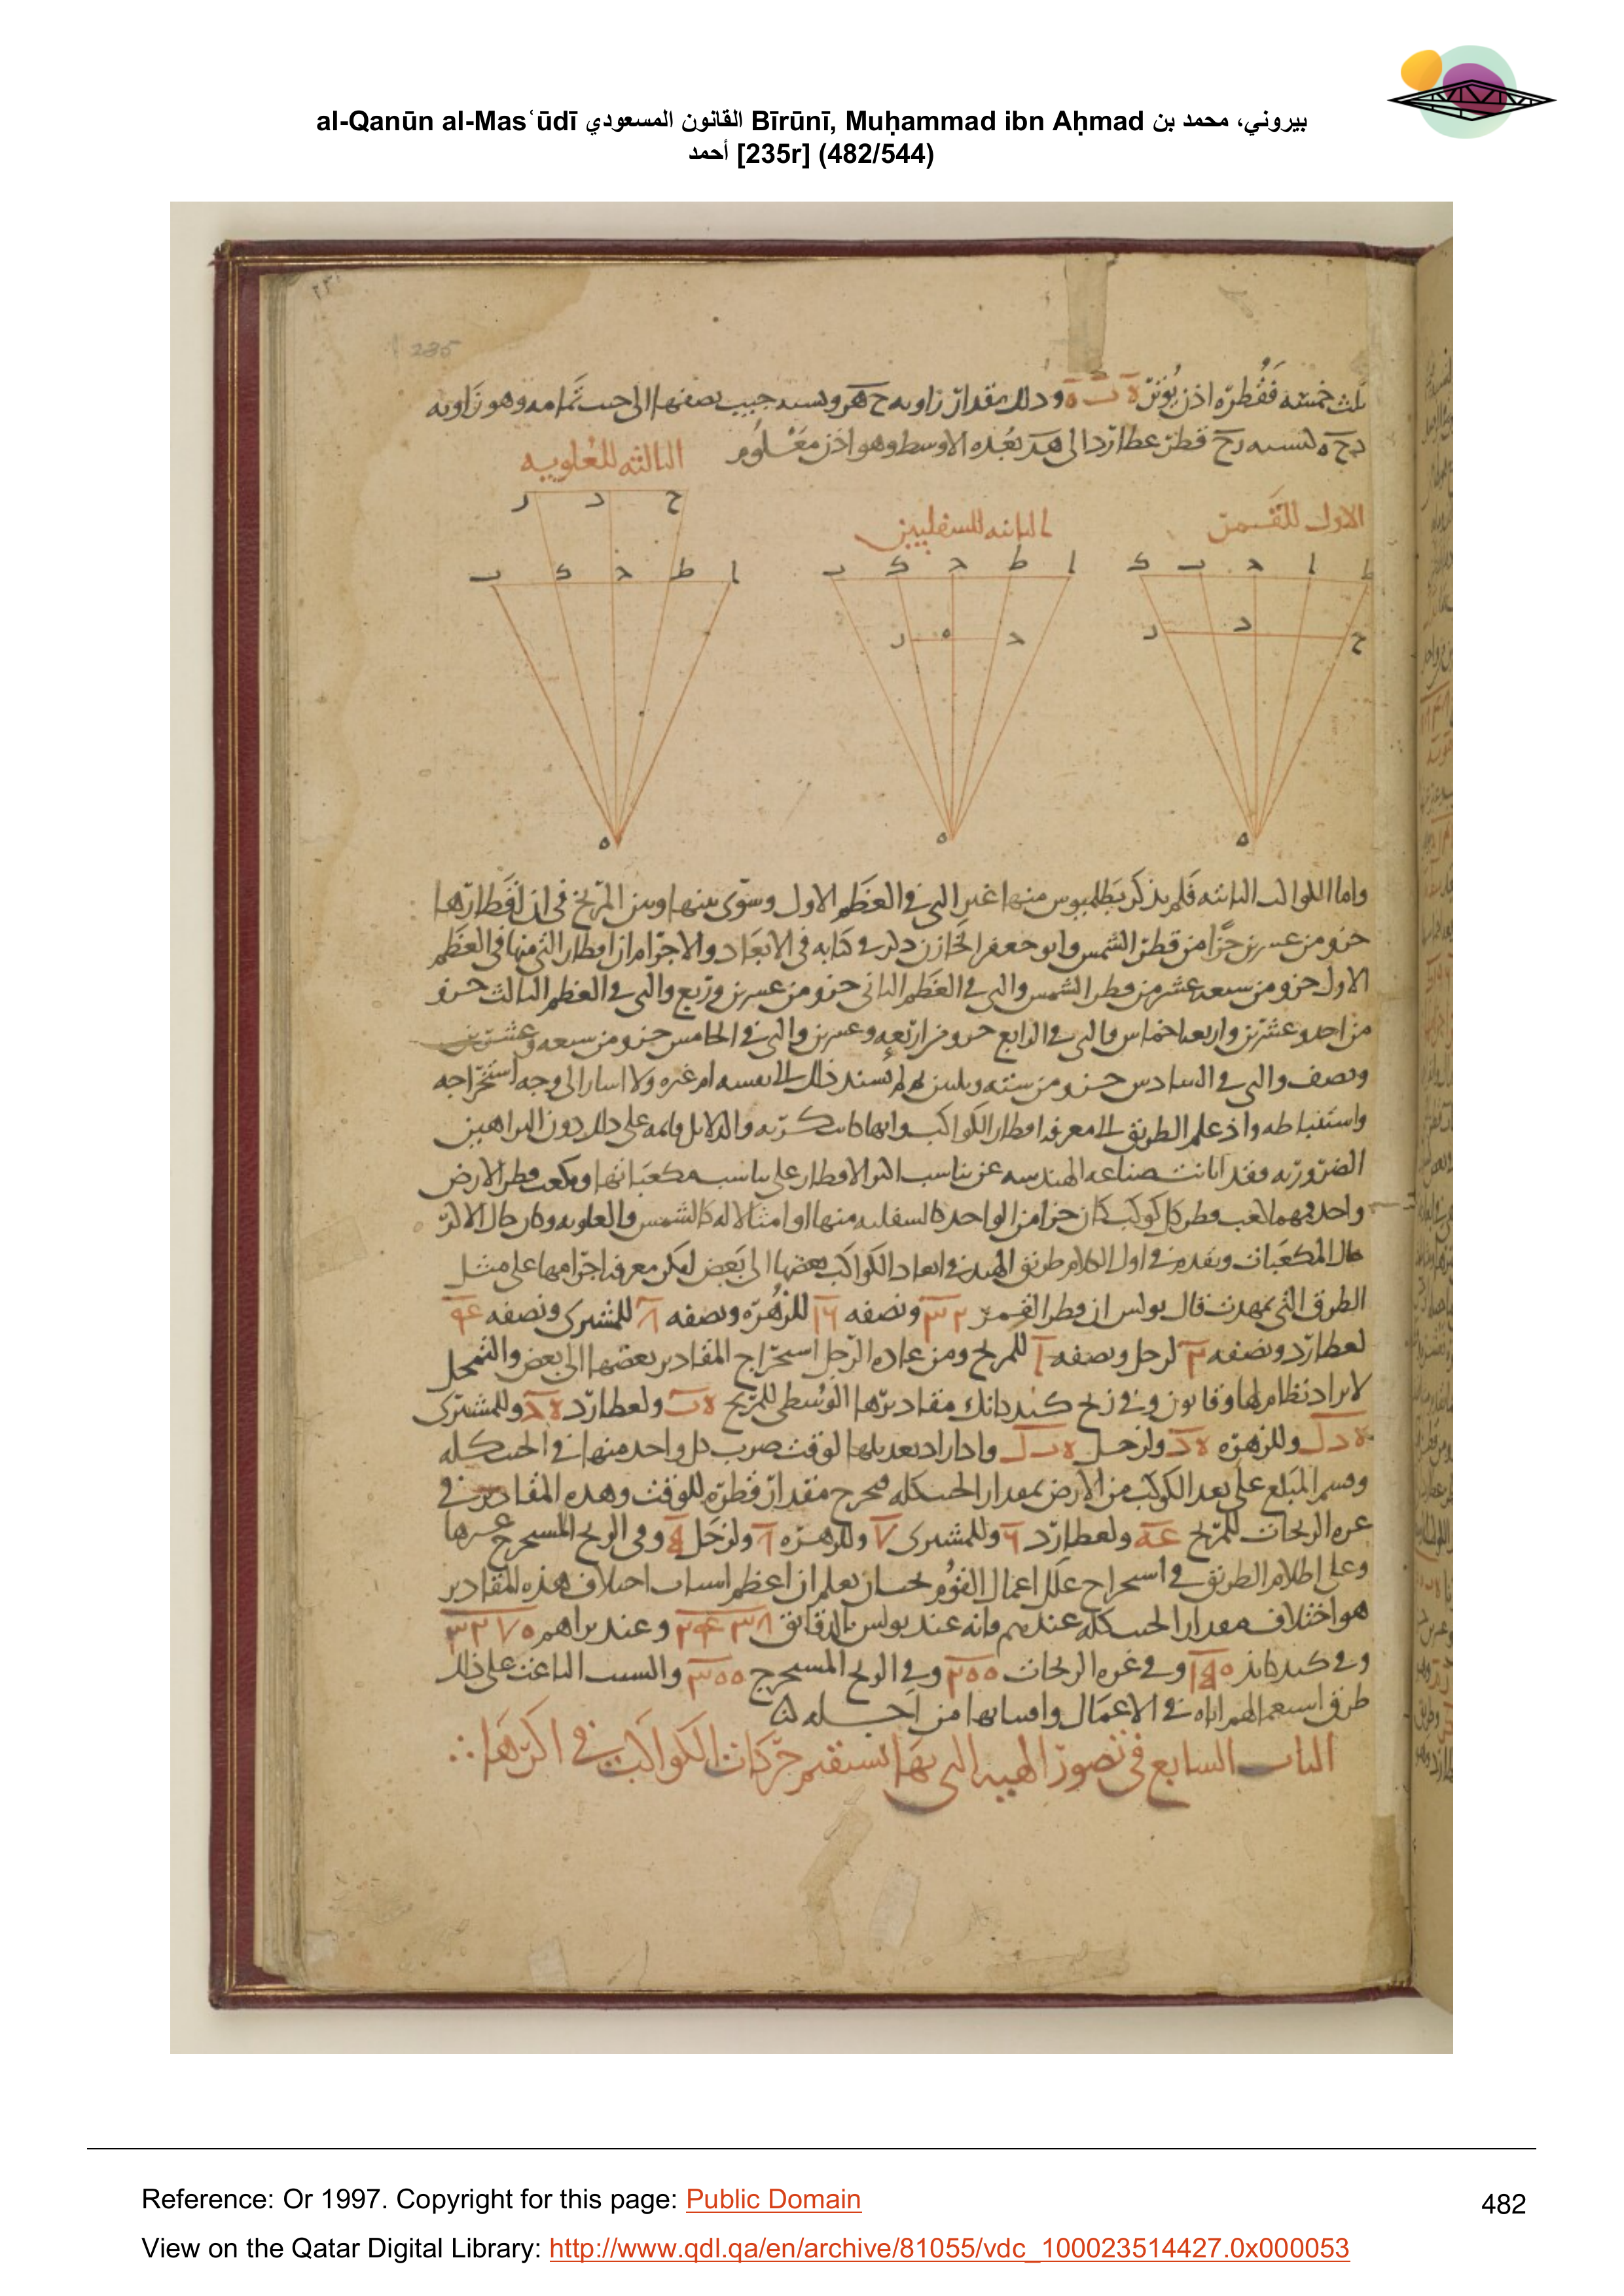 al-Qanūn al-Masʿūdī القانون المسعودي Bīrūnī, Muḥammad ibn Aḥmad بيروني، محمد بن
أحمد [235r] (482/544)
235
ثلث خمسه فقطره اذن يوتر ودلك مقدار زاويه ونسبه جيب نصفها الى جيب تمامه وهو زاويه
قطر عطارد الى بعده الاوسط وهو اذن معلوم
الثالثه للعلويه
الثانيه للسفليين
الاول للقمر
ر د ح
ب ك ح ط ا
ب ك ح ط ا
ك ب ح ا ط
ر ه ح
ر د ح
ه ه ه
واما الكواكب الثابته فلم يذكر بطلميوس منها غير التى فى العظم الاول وسوى بينها وبين المريخ فى ان اقطارها
جزو من عسرين جزا من قطر الشمس وابو جعفر الخازن ذكر فى كتابه فى الابعاد والاجرام ان اقطار التى منها فى العظم
الاول جزو من سبعه عشر من قطر الشمس والتى فى العظم الثانى جزو من عسرين وربع والتى فى العظم الثالث جزو
من احد وعشرين واربعه اخماس والتى فى الرابع جزو من اربعه وعسرين والتى فى الخامس جزو من سبعه وعشرين
ونصف والتى فى السادس جزو من سته وثلثين ولم يسند ذلك الى نفسه او غيره ولا اسار الى وجه استخراجه
واستنباطه واذ علم الطريق الى معرفه اقطار الكواكب وانها كانت كريه والدلايل قايمه على ذلك دون البراهين
الضروريه وقد ابانت صناعه الهندسه عن تناسب اكر الاقطار على تناسب مكعباتها ومكعب قطر الارض
واحد فمهما كعب قطر كل كوكب كان جزا من الواحد كالسفليه منها او امثالا له كالشمس والعلويه وكان حال الاكر
حال المكعبات وتقدم فى اول الكلام طريق الهند فى ابعاد الكواكب بعضها الى بعض ليكن معرفه اجرامها على مثل
الطرق التى تمهدت قال بولس ان قطر القمر ٣٢ ونصفه ١٦ للزهره ونصفه ٨ للمشترى ونصفه ۴
لعطارد ونصفه ٢ لزحل ونصفه ١ للمريخ ومن عاده الرجل استخراج المقادير بعضها الى بعض والتمحل
لايراد نظام لها وقانون وفى زيج كندكاتك مقاديرها الوسطى للمريخ ولعطارد وللمشترى
وللزهره ولزحل واذا اراد تعديلها لوقت ضرب كل واحد منها فى الجيب كله
وقسم المبلغ على بعد الكوكب من الارض بمقدار الجيب كله فيخرج مقدار قطره للوقت وهذه المقادير فى
غره الزيجات للمريخ ولعطارد ٦ وللمشترى ٧ وللزهره ولزحل وفى الزيج المسخرج
وعلى اظلام الطريق فى اسخراج علل اعمال القوم يعلم ان اعظم اسباب اختلاف هذه المقادير
هو اختلاف مقدار الجيب كله عندهم فانه عند بولس بالدقايق ٣٤٣٨ وعند براهم ٣٢٧٠
وفى كندكاتك ١٥٠ وفى غره الزيجات ٢٠٠ وفى الزيج المسخرج ٣٠٠ والسبب الباعث على ذلك
طرق استعمالهم اياه فى الاعمال وافسانها من اجله
الباب السابع فى تصور الهييه التى بها تستقيم حركات الكواكب فى اكرها
Reference: Or 1997. Copyright for this page: Public Domain
482
View on the Qatar Digital Library: http://www.qdl.qa/en/archive/81055/vdc_100023514427.0x000053